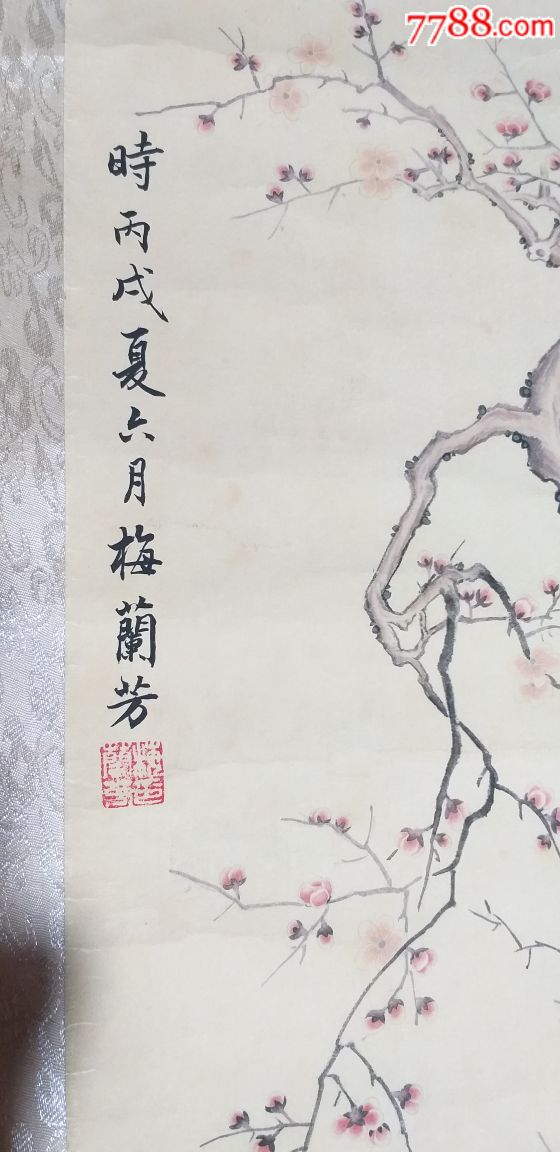 7788.com
時丙戌夏六月梅蘭芳